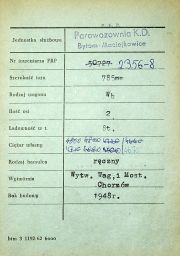 P. K. P.
Jednostka służbowa
Parowozownia K.D.
Bytom-Maciejkowice
Nr inwentarza PKP 2356-8
Szerokość toru 785mm
Rodzaj wagonu Wb
Ilość osi 2
Ładowność w t. 8t.
Ciężar własny
Rodzaj hamulca ręczny
Wytwórnia Wytw. Wag. i Most.
Chorzów
Rok budowy 1948r.